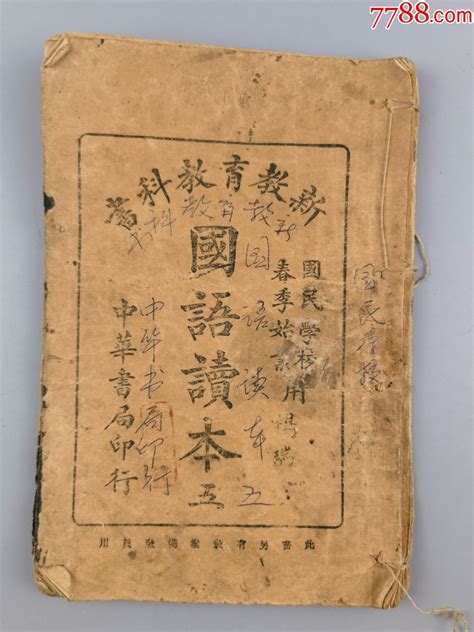 7788.com
新教育教科書
新教育教科书
國民學校用
春季始業
國語讀本 五
國語读本 五
中華書局印行
中华书局印行
国民学校
此書另有教案備教員用